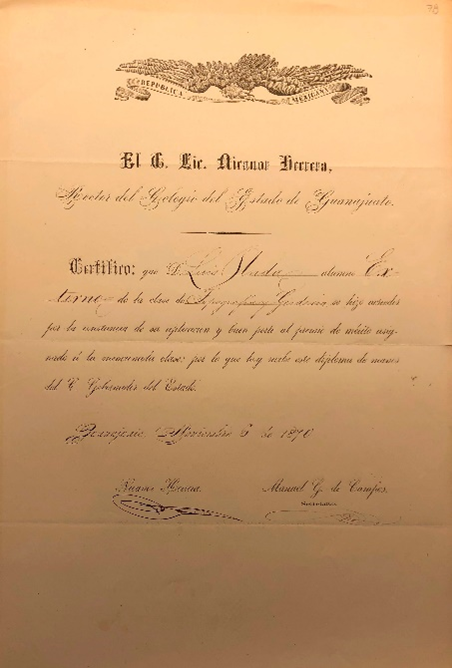 78
REPUBLICA MEXICANA
El C. Lic. Nicanor Herrera,
Rector del Colegio del Estado de Guanajuato.
Certifico: que D. Luis alumno Ex-
terno de la clase de Topografia y Geodesia se hizo acreedor
por la constancia de su aplicacion y buen porte al premio de mérito asig-
nado á la mencionada clase: por lo que hoy recibe este diploma de manos
del C. Gobernador del Estado.
Guanajuato, Noviembre de 1870
Nicanor Herrera. Manuel G. de